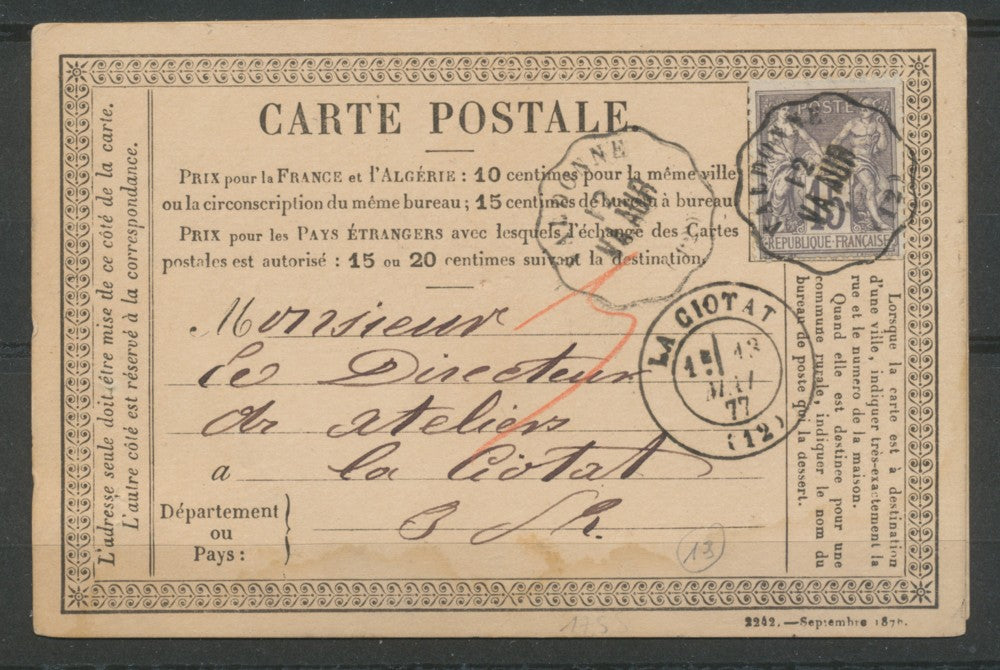 CARTE POSTALE.
PRIX pour la FRANCE et l'ALGÉRIE : 10 centimes pour la même ville
ou la circonscription du même bureau ; 15 centimes de bureau à bureau
PRIX pour les PAYS ÉTRANGERS avec lesquels l'échange des Cartes
postales est autorisé : 15 ou 20 centimes suivant la destination.
POSTE
15
REPUBLIQUE FRANÇAISE
VALDONNE
12
(12)
VALDONNE
12
LA CIOTAT
13
77
(12)
Monsieur
Le Directeur
a la Ciotat
Département
ou
Pays :
L'adresse seule doit être mise de ce côté de la carte.
L'autre côté est réservé à la correspondance.
Lorsque la carte est à destination
d'une ville, indiquer très-exactement la
rue et le numero de la maison.
Quand elle est destinée pour une
commune rurale, indiquer le nom du
bureau de poste qui la dessert.
13
2242.—Septembre 187